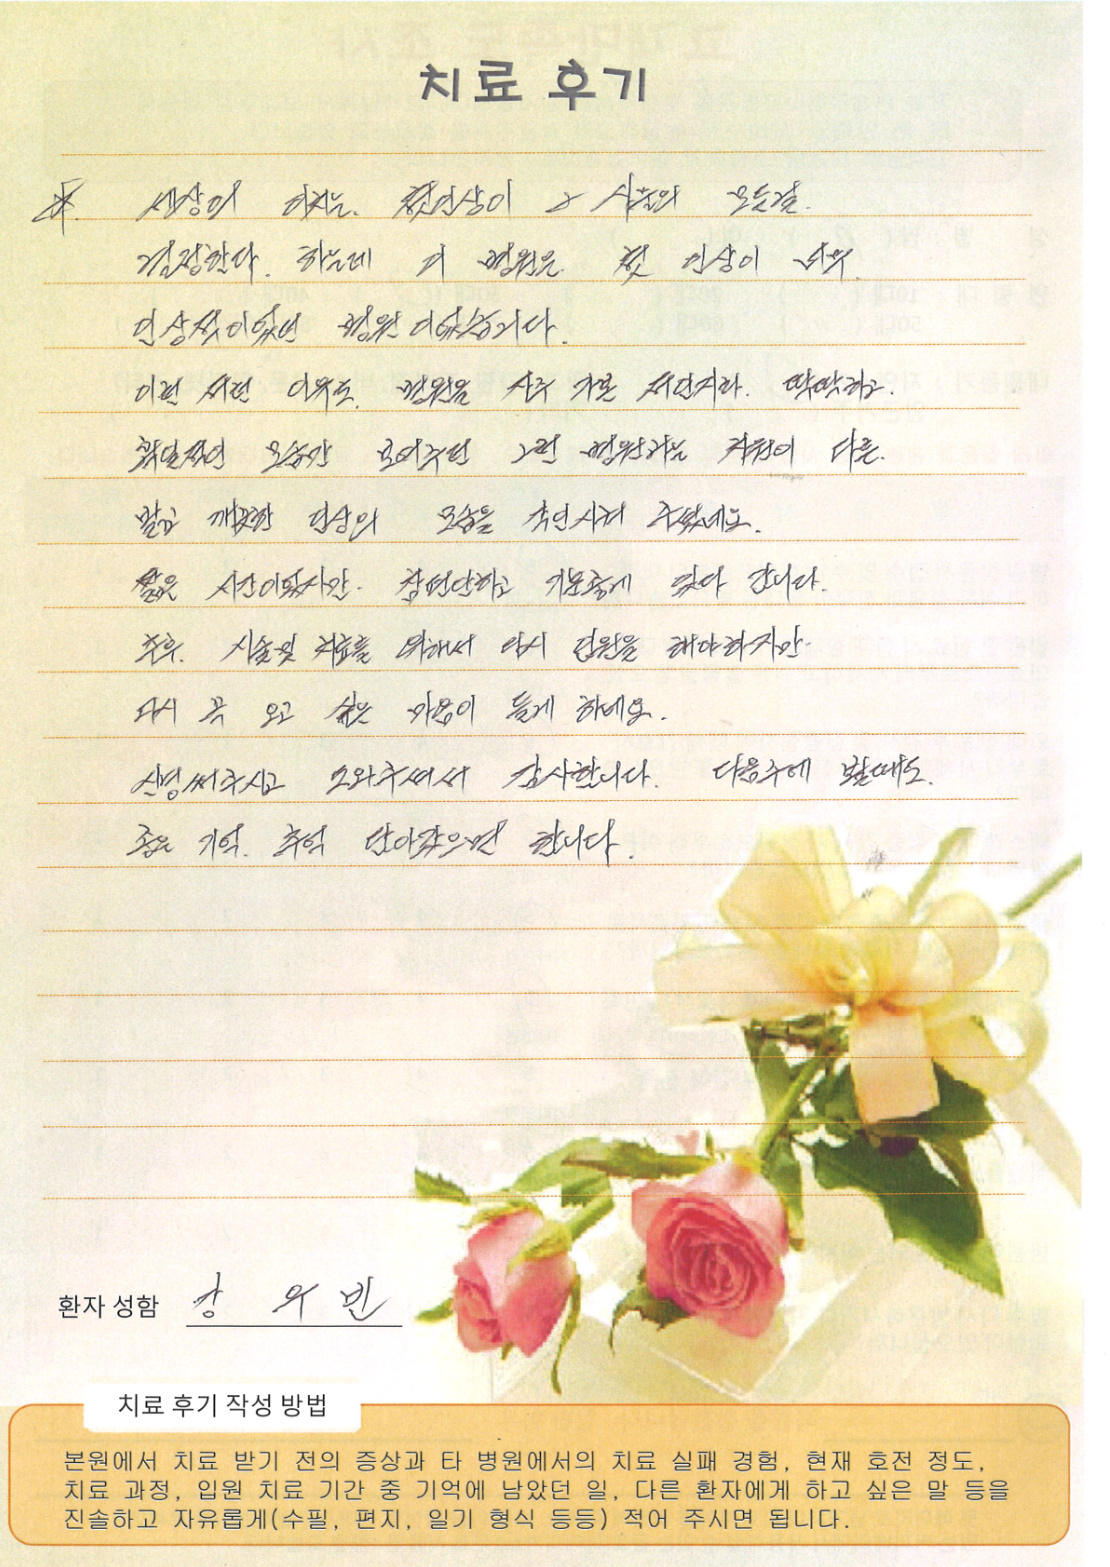 치료 후기
※. 세상에 비치는. 첫인상이 그 사람의 모든걸.
결정한다. 하는데 이 병원은 첫 인상이 너무
인상적이었던 병원이었습니다.
이런 저런 이유로. 병원을 자주 가본 저인지라. 딱딱하고.
획일적인 모습만 보여주던 그런 병원과는 차원이 다른.
밝고 깨끗한 인상의 모습을 각인시켜 주셨네요.
짧은 시간이었지만. 참 편안하고 기분좋게 있다 갑니다.
추후. 시술및 치료를 위해서 다시 입원을 해야 하지만.
다시 꼭 오고 싶은 마음이 들게 하네요.
신경써주시고 도와주셔서 감사합니다. 다음주에 뵐때도.
좋은 기억. 추억 담아갔으면 합니다.
환자 성함 강 의 빈
치료 후기 작성 방법
본원에서 치료 받기 전의 증상과 타 병원에서의 치료 실패 경험, 현재 호전 정도,
치료 과정, 입원 치료 기간 중 기억에 남았던 일, 다른 환자에게 하고 싶은 말 등을
진솔하고 자유롭게(수필, 편지, 일기 형식 등등) 적어 주시면 됩니다.